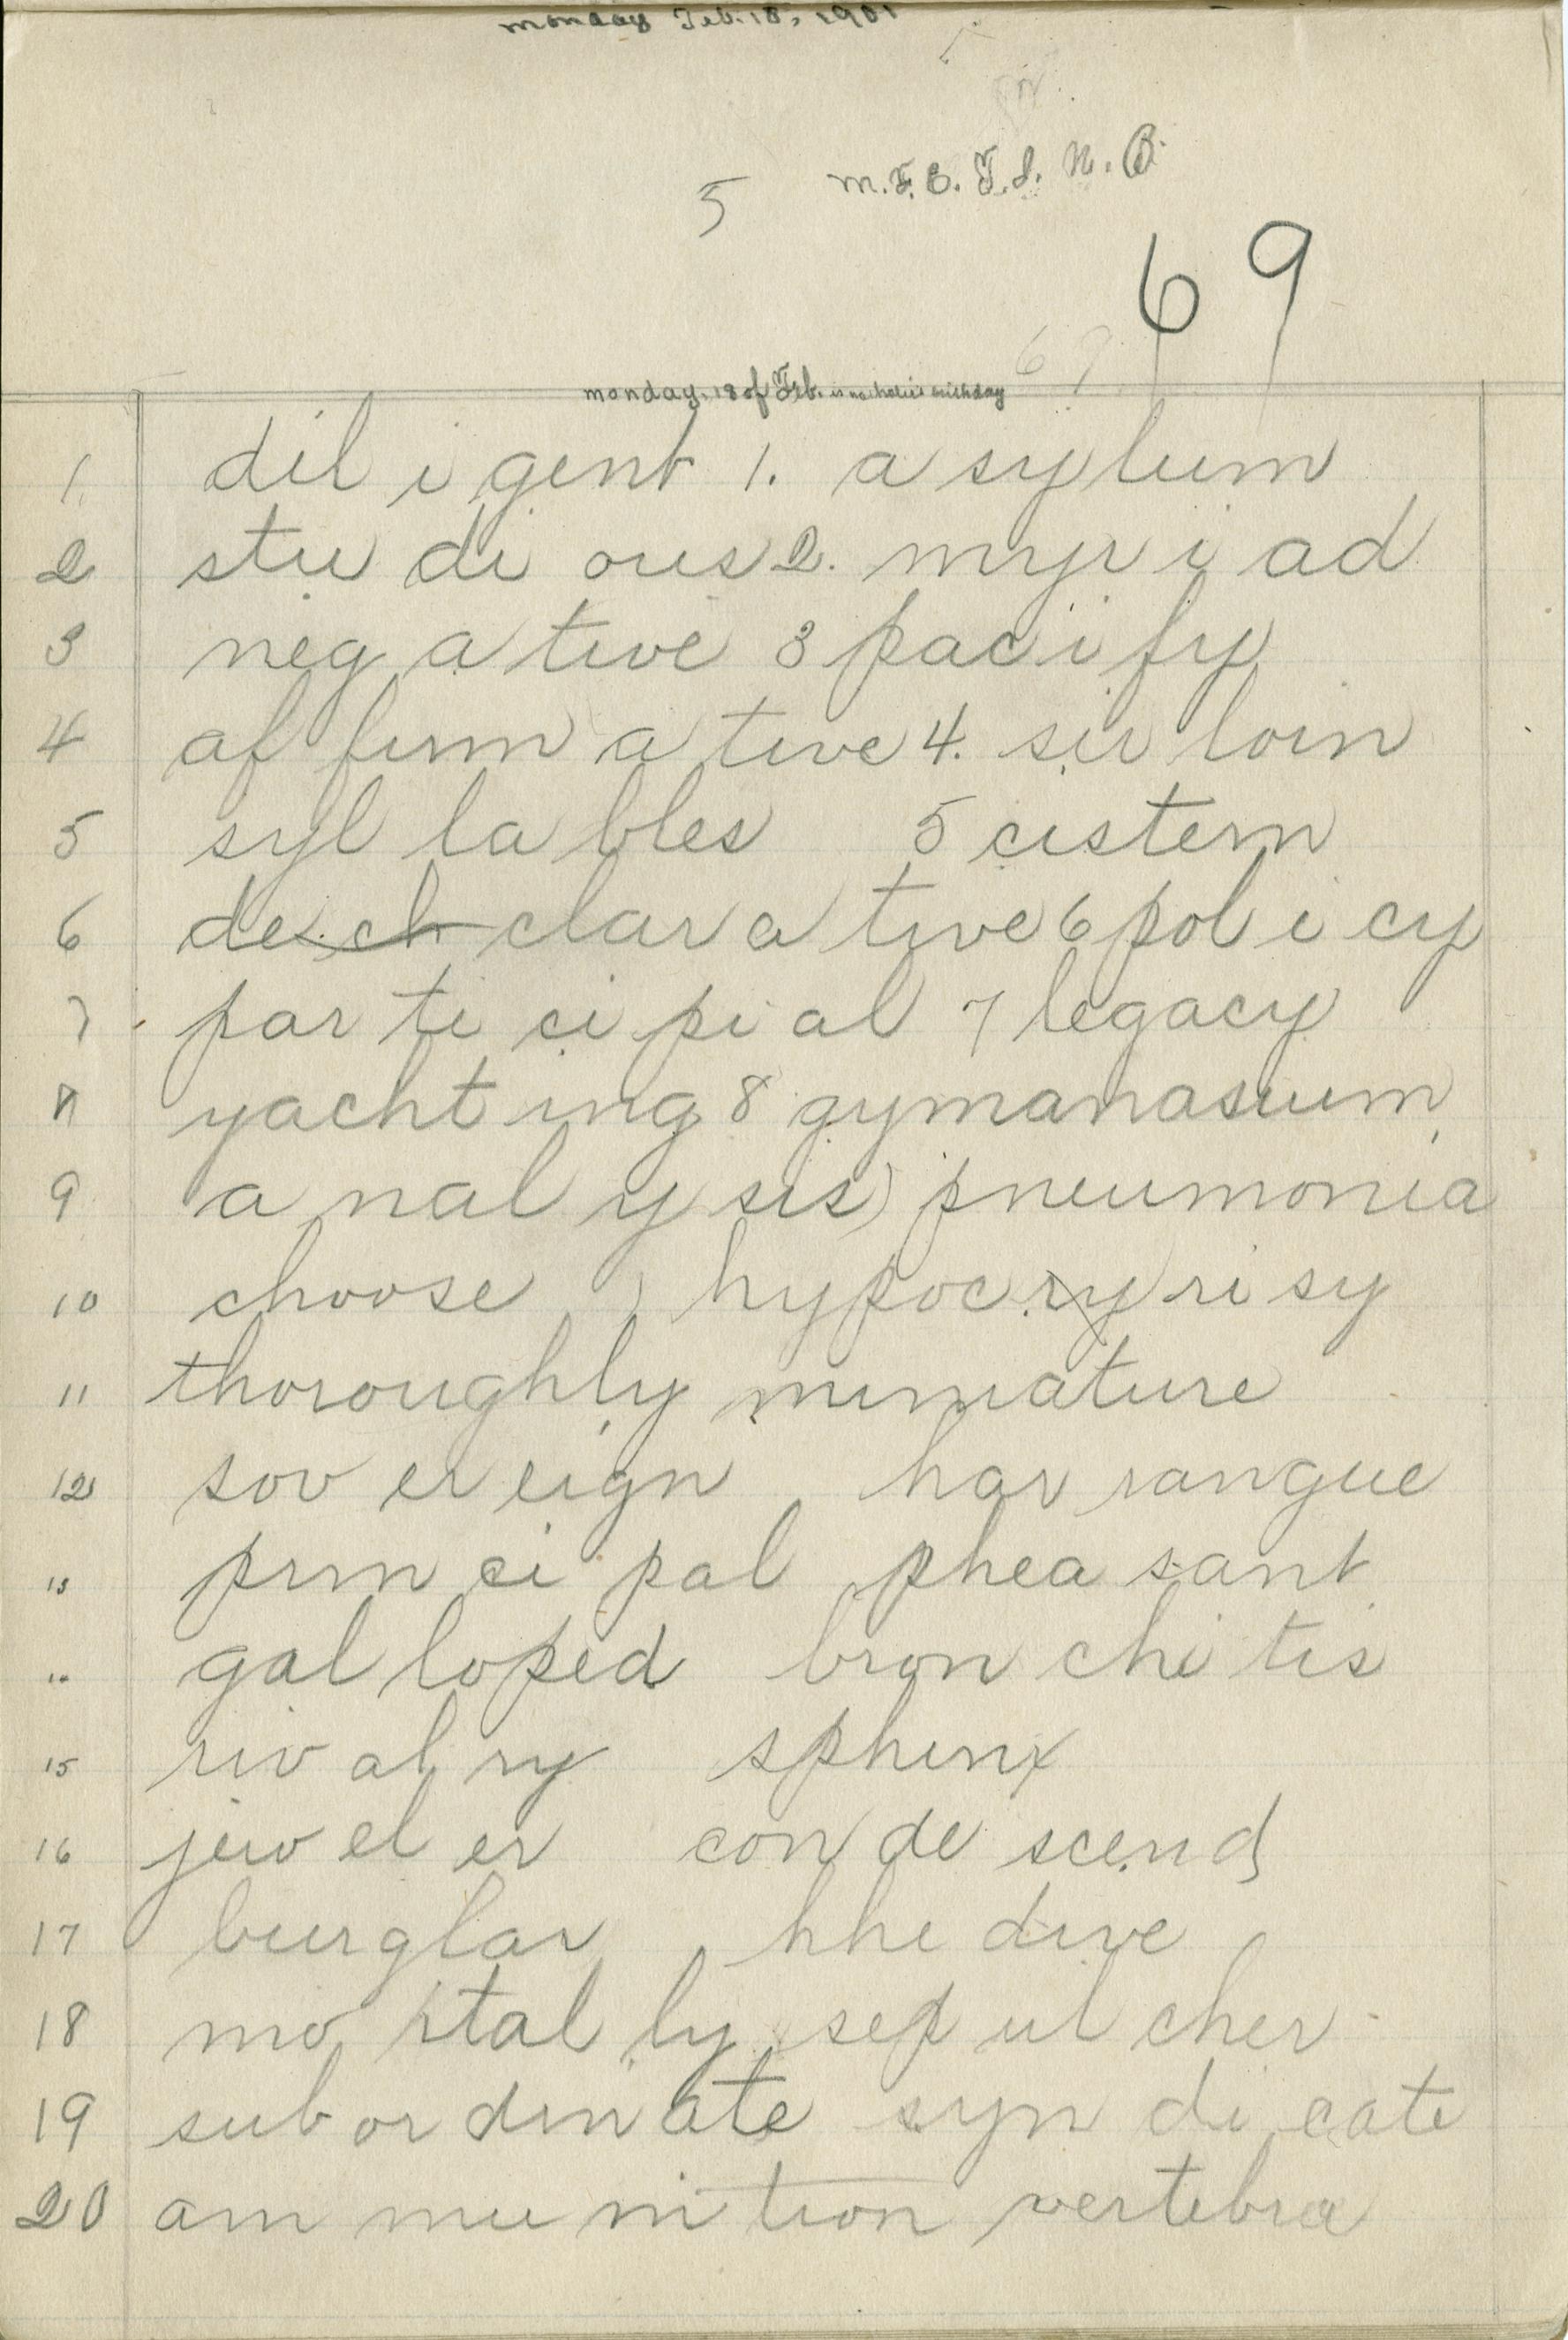 Monday Feb. 18, 1901
5 M.F.E.T.S. N. B.
69
69
Monday, 18 of Feb. is birthday
1. dil i gent 1. a sylum
2 stu di ous 2. myr i ad
3 neg a tive 3 pac i fy
4 af firm a tive 4. sir loin
5 syl la bles 5 cistern
6 de ch clar a tive 6 pol i cy
7 par ti ci pi al 7 legacy
8 yacht ing 8 gymanasium
9 a nal y sis) pneumonia
10 choose ) hypocry ri sy
11 thoroughly miniature
12 sov er eign har rangue
13 prin ci pal phea sant
14 gal loped bron chi tis
15 riv al ry sphinx
16 jew el er con de scend
17 burglar khe dive
18 mo rtal ly sep ul cher
19 sub or din ate syn di cate
20 am mu ni tion vertebra